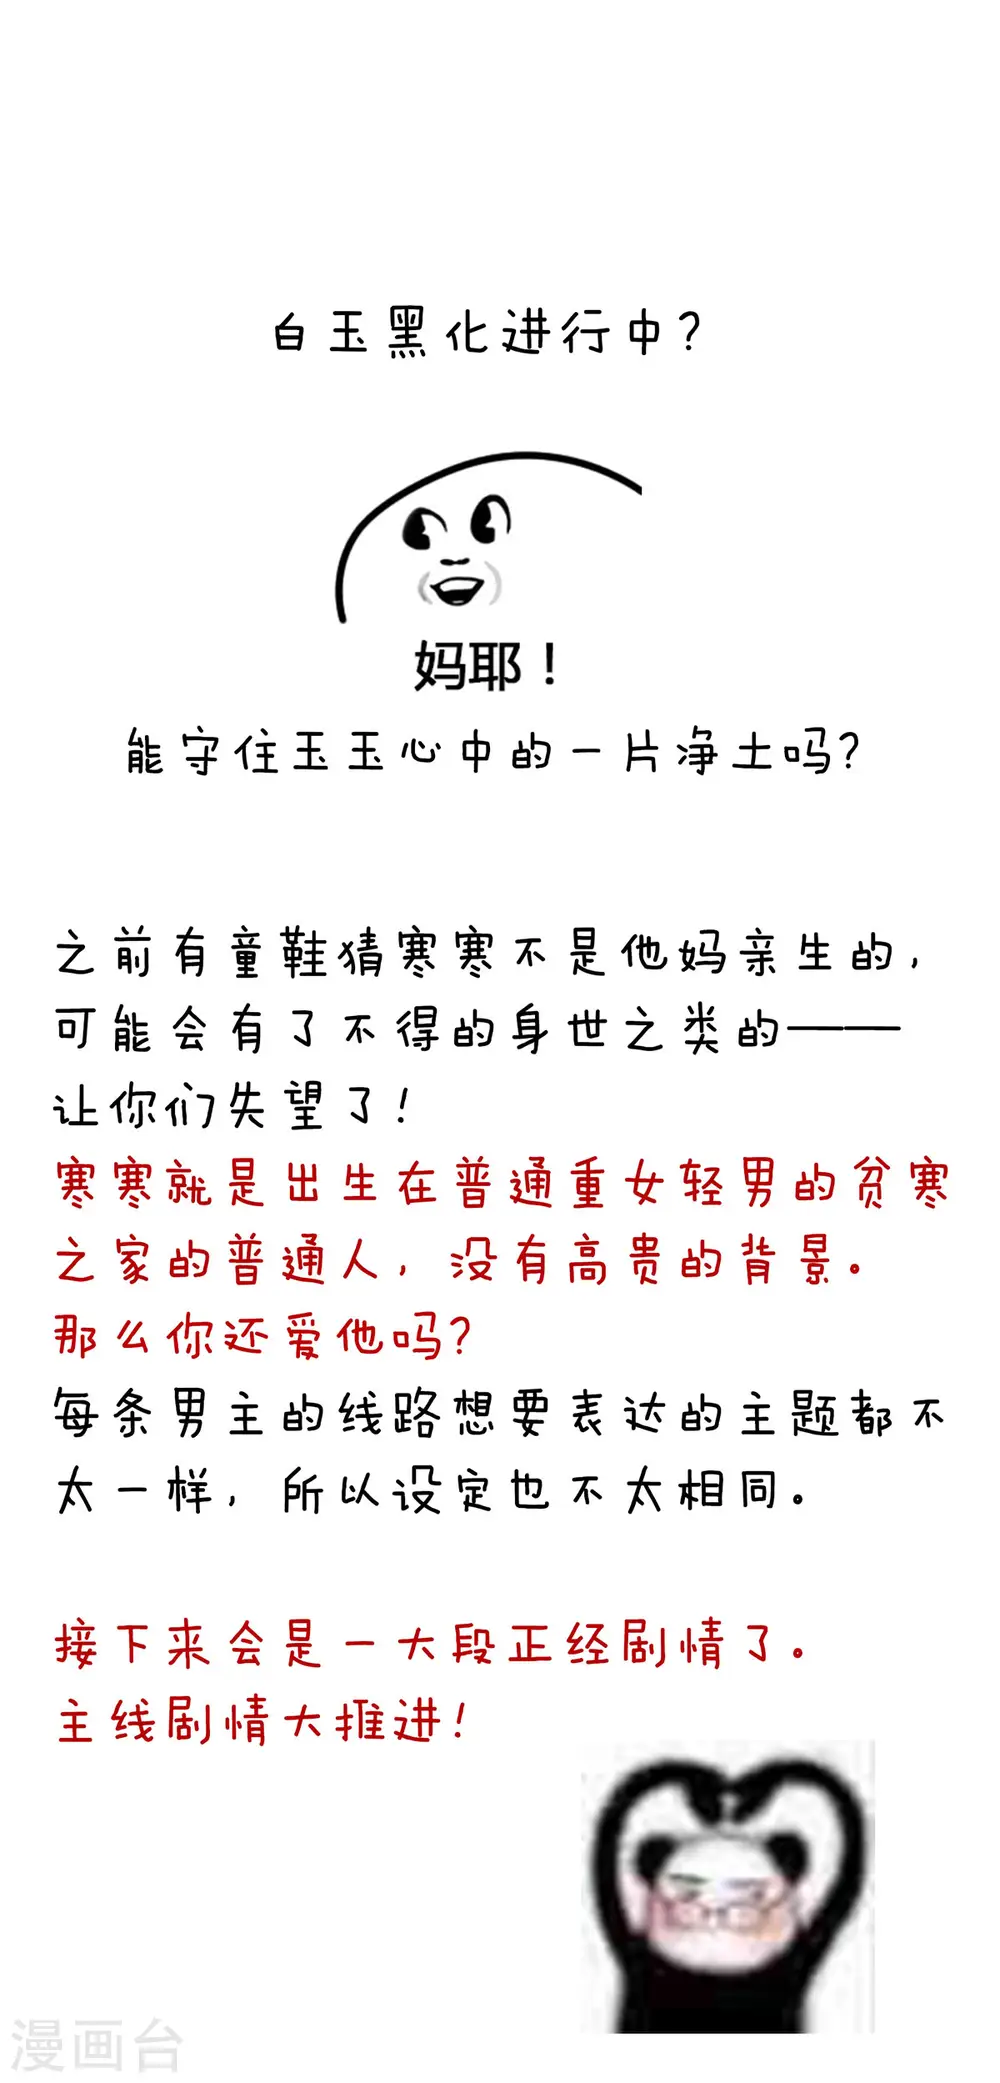 白玉黑化进行中?
妈耶！
能守住玉玉心中的一片净土吗?
之前有童鞋猜寒寒不是他妈亲生的,
可能会有了不得的身世之类的——
让你们失望了!
寒寒就是出生在普通重女轻男的贫寒
之家的普通人,没有高贵的背景。
那么你还爱他吗?
每条男主的线路想要表达的主题都不
太一样,所以设定也不太相同。
接下来会是一大段正经剧情了。
主线剧情大推进!
漫画台